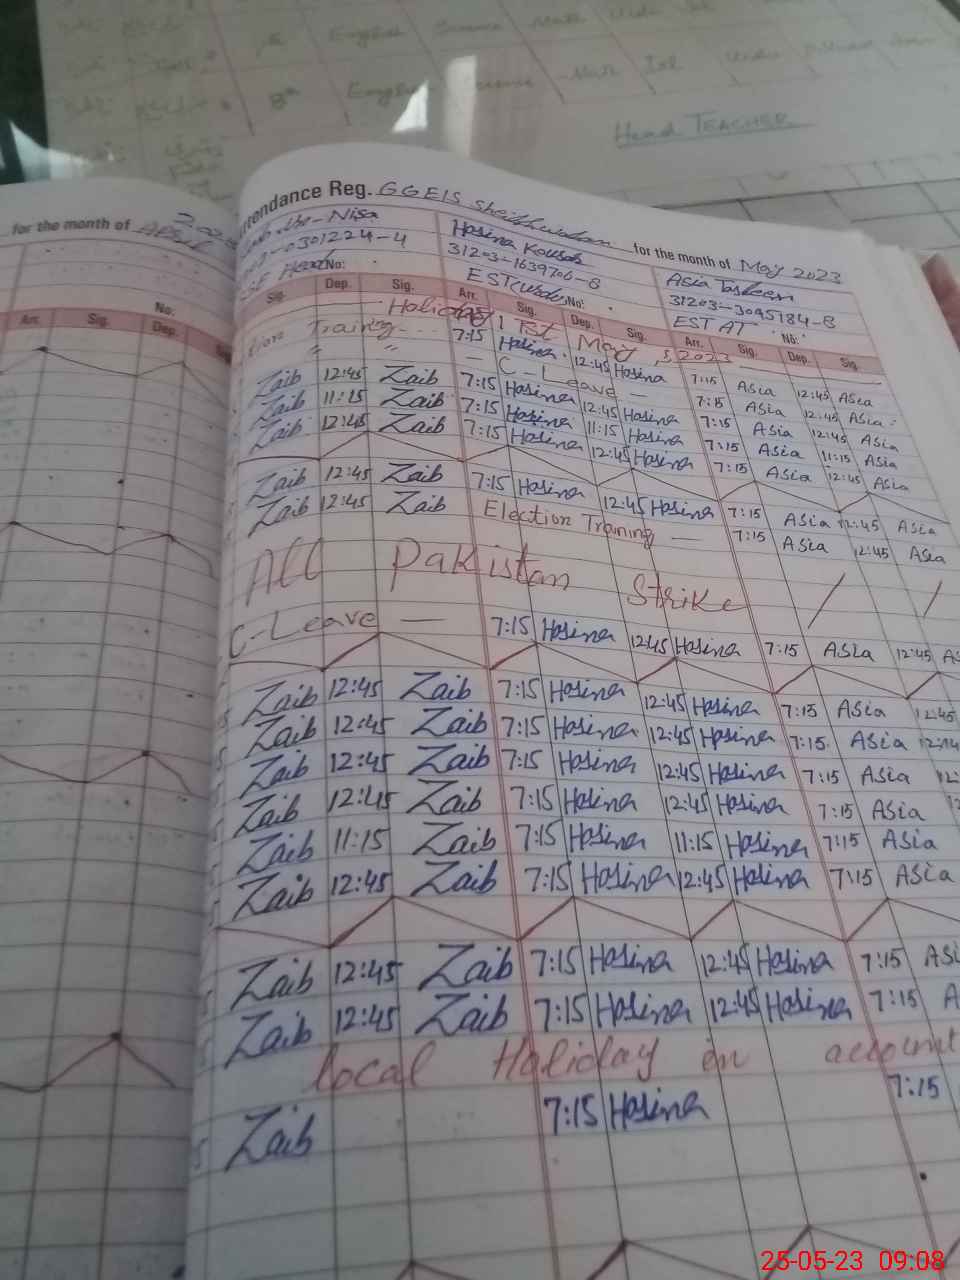 English Science Math Urdu Isl
8th English Science Math Isl Urdu
Head TEACHER
for the month of April
Attendance Reg. GGEIS Sheikhwahan for the month of May 2023
Nisa Hasina Kousab Asia Tasleem
0301224-4 31203-1639706-8 31203-3095184-8
Head No: EST (Urdu) No: EST AT No:
No:
Arr. Sig. Dep.
Sig. Dep. Sig. Arr. Sig. Dep. Sig. Arr. Sig. Dep. Sig.
Holiday 1 Tst May, 2023
Training 7:15 Hasina 12:45 Hasina 7:15 Asia 12:45 Asia
" " — C-Leave — 7:15 Asia 12:45 Asia
Zaib 12:45 Zaib 7:15 Hasina 12:45 Hasina 7:15 Asia 12:45 Asia
Zaib 11:15 Zaib 7:15 Hasina 11:15 Hasina 7:15 Asia 11:15 Asia
Zaib 12:45 Zaib 7:15 Hasina 12:45 Hasina 7:15 Asia 12:45 Asia
Zaib 12:45 Zaib 7:15 Hasina 12:45 Hasina 7:15 Asia 12:45 Asia
Zaib 12:45 Zaib Election Training — 7:15 Asia 12:45 Asia
All Pakistan Strike / /
C-Leave — 7:15 Hasina 12:45 Hasina 7:15 Asia 12:45 As
Zaib 12:45 Zaib 7:15 Hasina 12:45 Hasina 7:15 Asia 12:45
Zaib 12:45 Zaib 7:15 Hasina 12:45 Hasina 7:15 Asia
Zaib 12:45 Zaib 7:15 Hasina 12:45 Hasina 7:15 Asia 12:
Zaib 12:45 Zaib 7:15 Hasina 12:45 Hasina 7:15 Asia
Zaib 11:15 Zaib 7:15 Hasina 11:15 Hasina 7:15 Asia
Zaib 12:45 Zaib 7:15 Hasina 12:45 Hasina 7:15 Asia
Zaib 12:45 Zaib 7:15 Hasina 12:45 Hasina 7:15 Asi
Zaib 12:45 Zaib 7:15 Hasina 12:45 Hasina 7:15 A
local Holiday on account
Zaib 7:15 Hasina 7:15
25-05-23 09:08